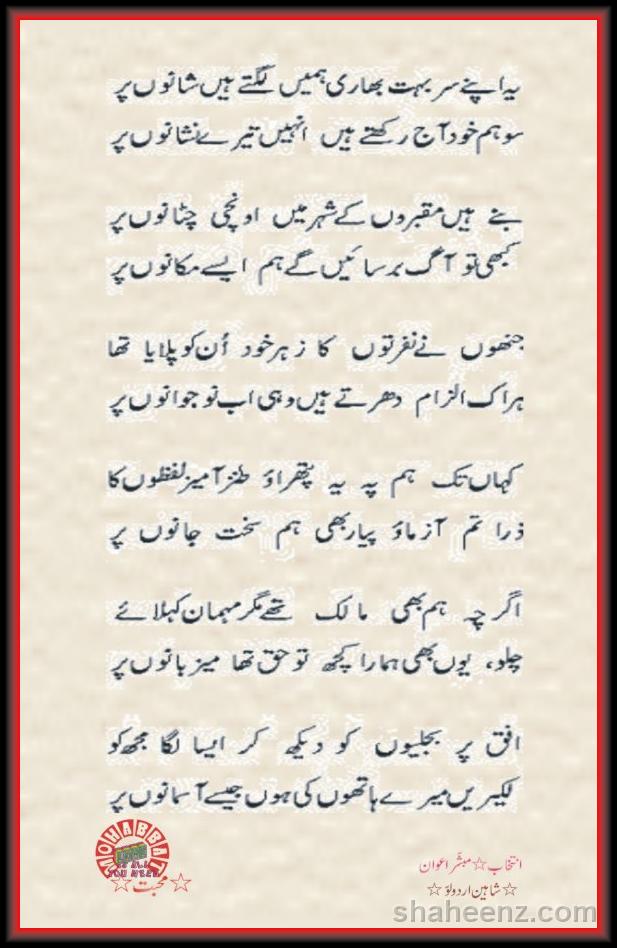 یہ اپنے سر بہت بھاری ہمیں لگتے ہیں شانوں پر
سو ہم خود آج رکھتے ہیں انہیں تیرے نشانوں پر
بنے ہیں مقبروں کے شہر میں اونچی چٹانوں پر
کبھی تو آگ برسائیں گے ہم ایسے مکانوں پر
جنھوں نے نفرتوں کا زہر خود اُن کو پلایا تھا
ہر اک الزام دھرتے ہیں وہی اب نوجوانوں پر
کہاں تک ہم پہ یہ پتھراؤ طنز آمیز لفظوں کا
ذرا تم آزماؤ پیار بھی ہم سخت جانوں پر
اگر چہ ہم بھی مالک تھے مگر مہمان کہلائے
چلو، یوں بھی ہمارا کچھ تو حق تھا میزبانوں پر
افق پر بجلیوں کو دیکھ کر ایسا لگا مجھ کو
لکیریں میرے ہاتھوں کی ہوں جیسے آسمانوں پر
MOHABBAT
☆ محبت ☆
انتخاب ☆ مبشّر اعوان
☆ شاہین اردو لو ☆
shaheenz.com